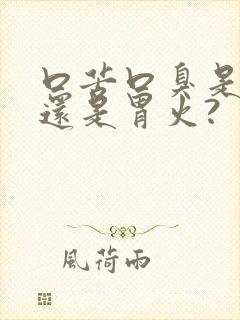 口苦口臭是
還是胃火?
風荷雨